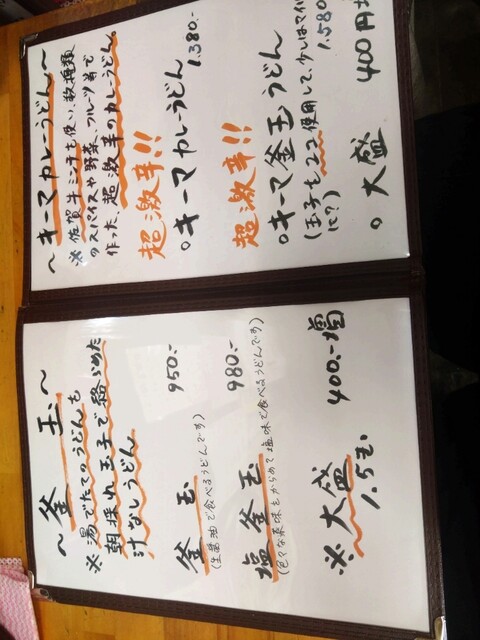 ～キーマカレーうどん～
※佐賀牛ミンチを使い、数種類
のスパイスや野菜、フルーツ等で
作った、超激辛のカレーうどん。
超激辛!!
○キーマカレーうどん
1.380.-
超激辛!!
○キーマ釜玉うどん
(玉子を2コ使用して、少しはマイルド
に?)
1.580
○大盛 400円増
～釜玉～
※湯でたてのうどんを
朝採れ玉子で絡めた
汁なしうどん
釜玉 950.-
(生醤油で食べるうどんです)
塩釜玉 980.-
(色々な薬味をからめて塩味で食べるうどんです)
※大盛 400.-増
1.5玉